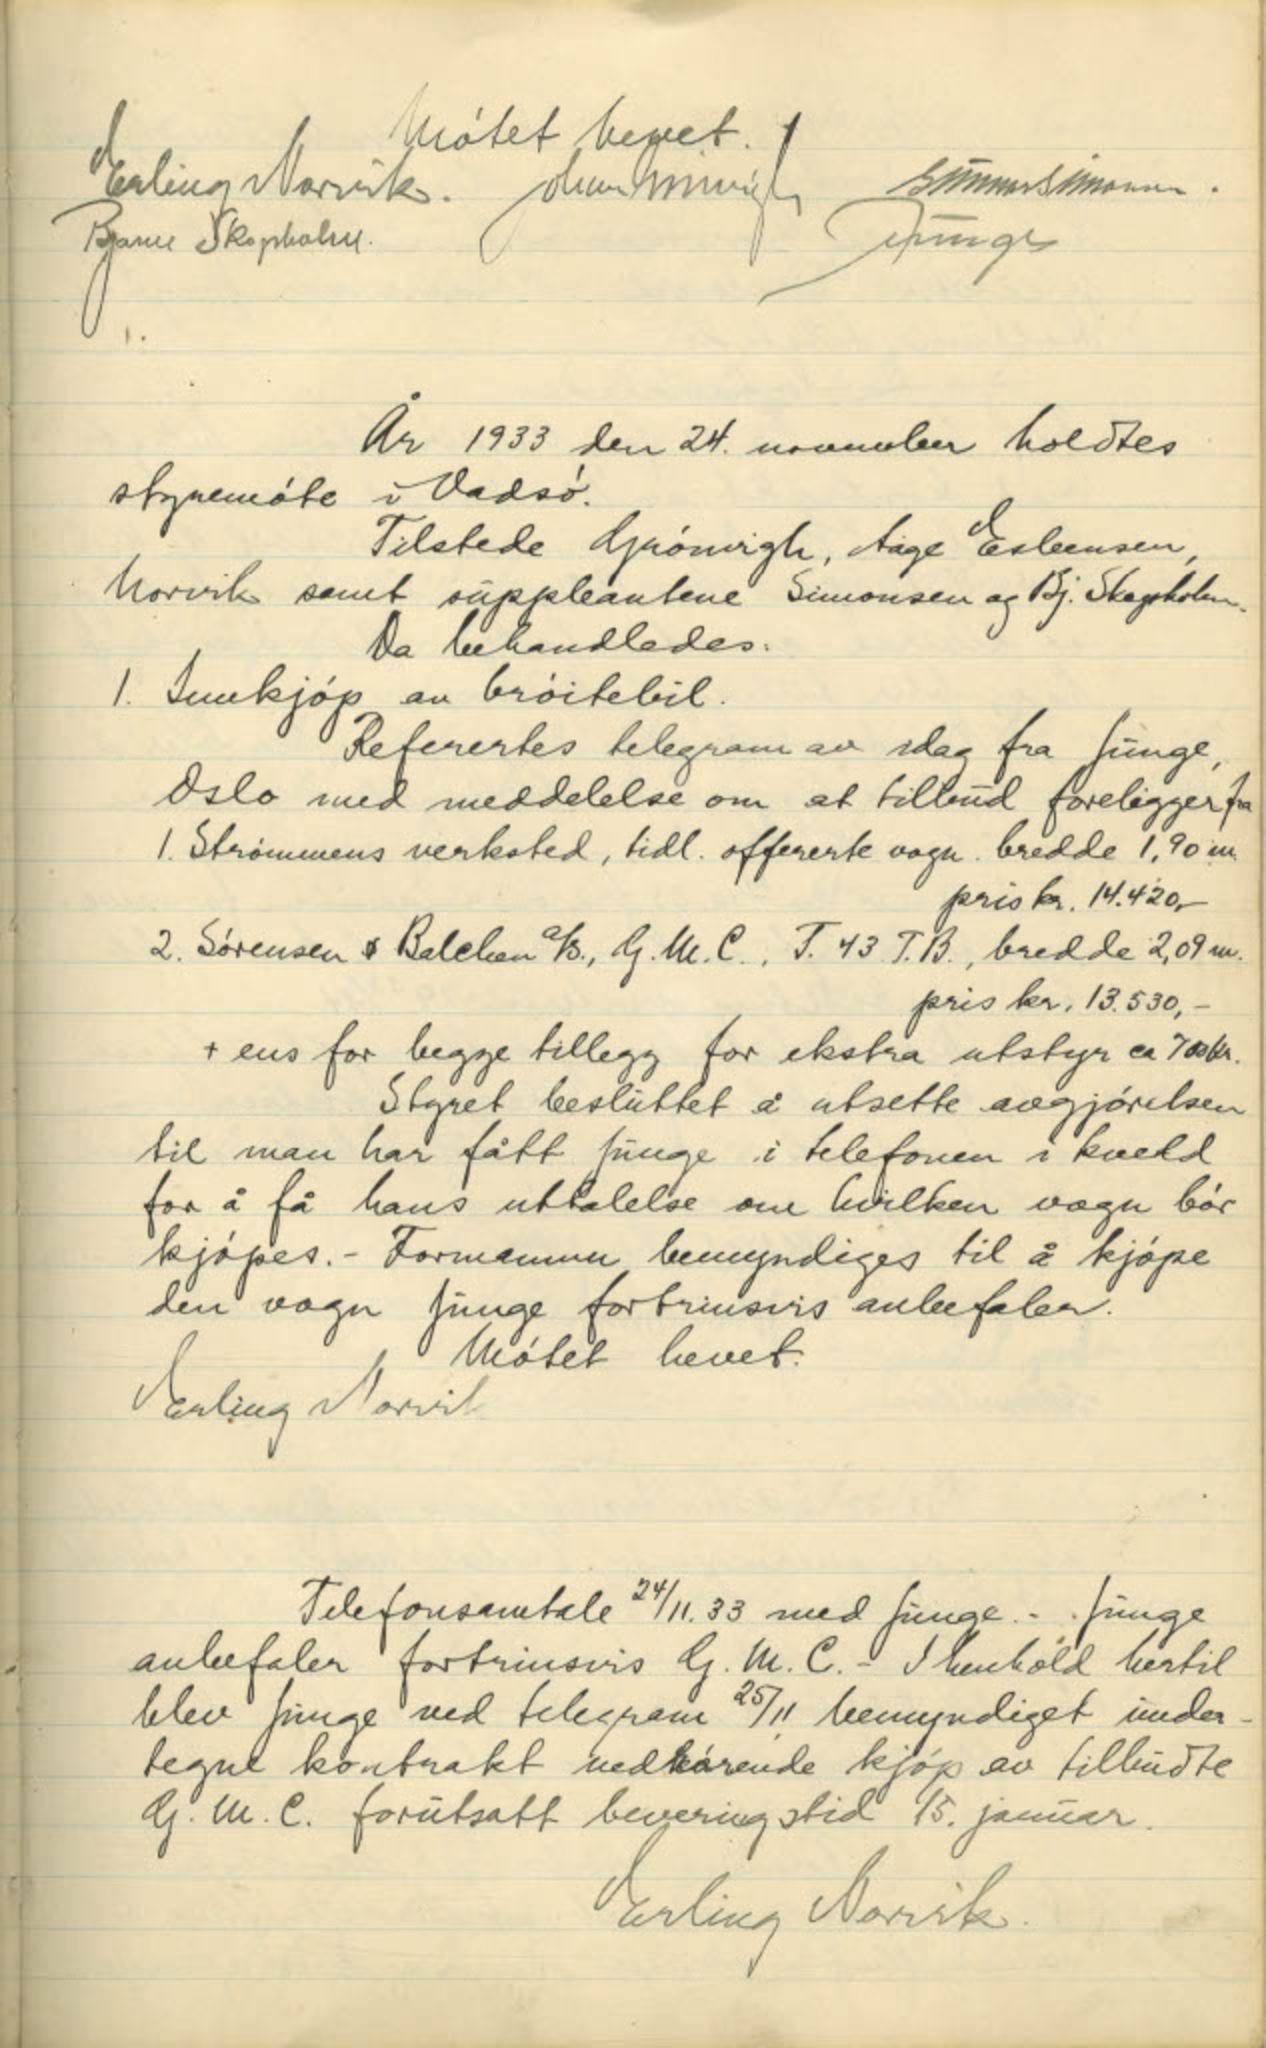 Mótet hevet.
Erling Norvik. Gunnar Simonsen.
Bjarne Skogsholm. Junge
År 1933 den 24. november holdtes
styremóte i Vadsó.
Tilstede Grónvigh, Aage Esbensen,
Norvik samt suppleantene Simonsen og Bj. Skogsholm.
Da behandledes:
1. Innkjóp av bróitebil.
Referertes telegram av idag fra Junge,
Oslo med meddelelse om at tilbud foreligger fra
1. Strømmens verksted, tidl. offererte vogn. bredde 1,90 m.
pris kr. 14.420,-
2. Sørensen & Balchen a/s., G. M. C., T. 43 T.B., bredde 2,09 m.
pris kr. 13.530,-
+ ens for begge tillegg for ekstra utstyr ca 700 kr.
Styret besluttet å utsette avgjórelsen
til man har fått Junge i telefonen i kveld
for å få hans uttalelse om hvilken vogn bór
kjópes. - Formannen bemyndiges til å kjópe
den vogn Junge fortrinsvis anbefaler.
Mótet hevet.
Erling Norvik
Telefonsamtale 24/11.33 med Junge. - Junge
anbefaler fortrinsvis G. M. C. - I henhold hertil
blev Junge ved telegram 25/11 bemyndiget under-
tegne kontrakt vedkórende kjóp av tilbudte
G. M. C. forutsatt leveringstid 15. januar.
Erling Norvik.